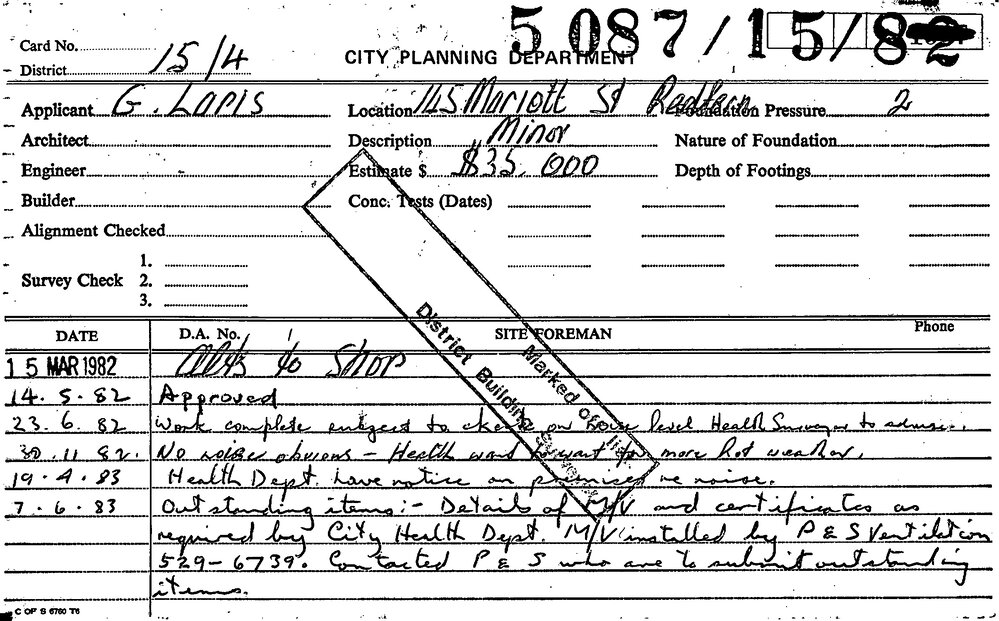 5087/15/82
Card No.
District 15/4
CITY PLANNING DEPARTMENT
Applicant G. Lapis Location 145 Mariott St Redfern Foundation Pressure 2
Architect Description Minor Nature of Foundation
Engineer Estimate $ $35,000 Depth of Footings
Builder Conc. Tests (Dates)
Alignment Checked
1.
Survey Check 2.
3.
DATE D.A. No. SITE FOREMAN Phone
15 MAR 1982 Alts to Shop
14.5.82 Approved
23.6.82 Work complete subject to check on noise level Health Surveyor to advise.
30.11.82. No noise obvious - Health want to wait for more hot weather.
19.4.83 Health Dept. have notice on premises re noise.
7.6.83 Outstanding items:- Details of M/V and certificates as
required by City Health Dept. M/V installed by P & S Ventilation
529-6739. Contacted P & S who are to submit outstanding
items.
Marked off
District Building Surveyor
C OF S 6760 T6